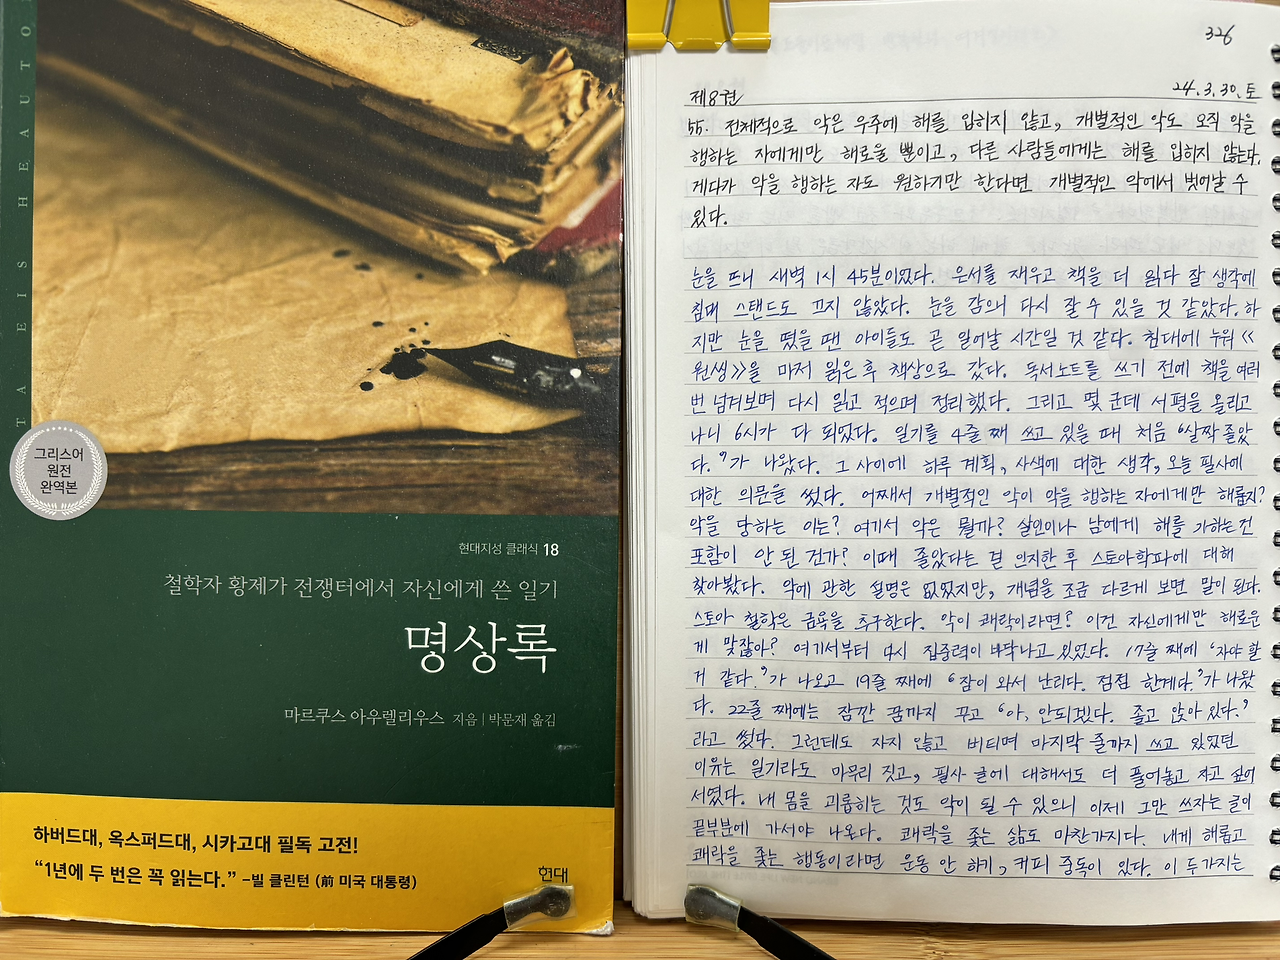 T A E I S H E A U T O
그리스어
원전
완역본
현대지성 클래식 18
철학자 황제가 전쟁터에서 자신에게 쓴 일기
명상록
마르쿠스 아우렐리우스 지음 | 박문재 옮김
하버드대, 옥스퍼드대, 시카고대 필독 고전!
“1년에 두 번은 꼭 읽는다.” –빌 클린턴 (前 미국 대통령)
현대
326
제8권 24.3.30.토
55. 전체적으로 악은 우주에 해를 입히지 않고, 개별적인 악도 오직 악을
행하는 자에게만 해로울 뿐이고, 다른 사람들에게는 해를 입히지 않는다.
게다가 악을 행하는 자도 원하기만 한다면 개별적인 악에서 벗어날 수
있다.
눈을 뜨니 새벽 1시 45분이었다. 은서를 재우고 책을 더 읽다 잘 생각에
침대 스탠드도 끄지 않았다. 눈을 감으니 다시 잘 수 있을 것 같았다. 하
지만 눈을 떴을 땐 아이들도 곧 일어날 시간일 것 같다. 침대에 누워 《
원씽》을 마저 읽은 후 책상으로 갔다. 독서노트를 쓰기 전에 책을 여러
번 넘겨보며 다시 읽고 적으며 정리했다. 그리고 몇 군데 서평을 올리고
나니 6시가 다 되었다. 일기를 4줄 째 쓰고 있을 때 처음 “살짝 졸았
다.”가 나왔다. 그 사이에 하루 계획, 사색에 대한 생각, 오늘 필사에
대한 의문을 썼다. 어째서 개별적인 악이 악을 행하는 자에게만 해롭지?
악을 당하는 이는? 여기서 악은 뭘까? 살인이나 남에게 해를 가하는건
포함이 안 된 건가? 이때 졸았다는 걸 인지한 후 스토아학파에 대해
찾아봤다. 악에 관한 설명은 없었지만, 개념을 조금 다르게 보면 말이 된다.
스토아 철학은 금욕을 추구한다. 악이 쾌락이라면? 이건 자신에게만 해로운
게 맞잖아? 여기서부터 다시 집중력이 바닥나고 있었다. 17줄 째에 ‘자야 할
거 같다.’가 나오고 19줄 째에 “잠이 와서 난리다. 점점 한계다.”가 나왔
다. 22줄 째에는 잠깐 꿈까지 꾸고 “아, 안되겠다. 졸고 앉아 있다.”
라고 썼다. 그런데도 자지 않고 버티며 마지막 줄까지 쓰고 있었던
이유는 일기라도 마무리 짓고, 필사 글에 대해서도 더 풀어놓고 자고 싶어
서였다. 내 몸을 괴롭히는 것도 악이 될 수 있으니 이제 그만 쓰자는 글이
끝부분에 가서야 나온다. 쾌락을 좇는 삶도 마찬가지다. 내게 해롭고
쾌락을 좇는 행동이라면 운동 안 하기, 커피 중독이 있다. 이 두가지는